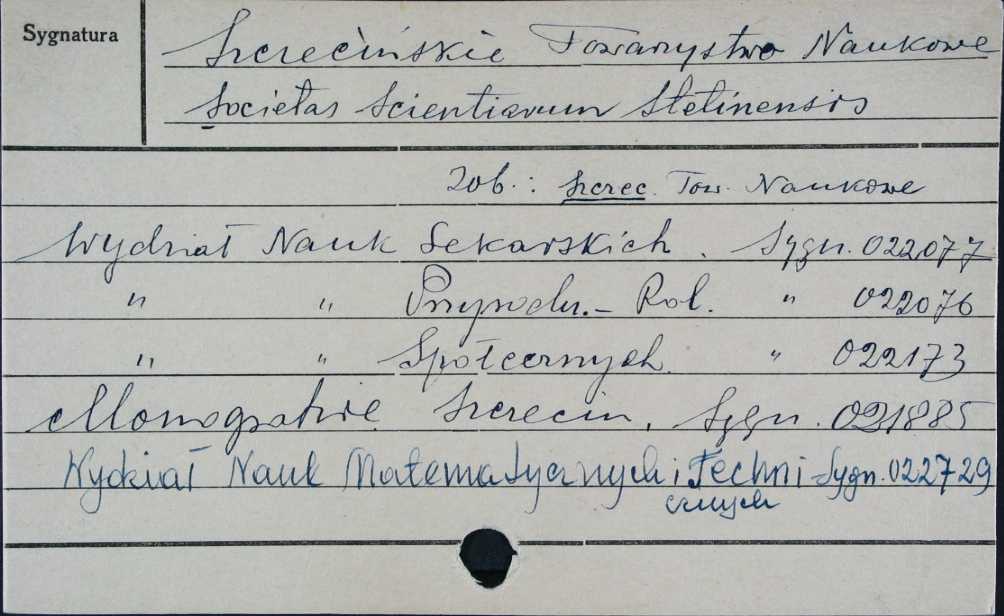 Sygnatura
Szczecińskie Towarzystwo Naukowe
Societas Scientiarum Stetinensis
Zob.: Szczec. Tow. Naukowe
Wydział Nauk Lekarskich. Sygn. 022077
" " Przyrodn.- Rol. " 022076
" " Społecznych " 022173
Monografie Szczecin, Sygn. 021885
Wydział Nauk Matematycznych i Techni - Sygn. 022729
cznych